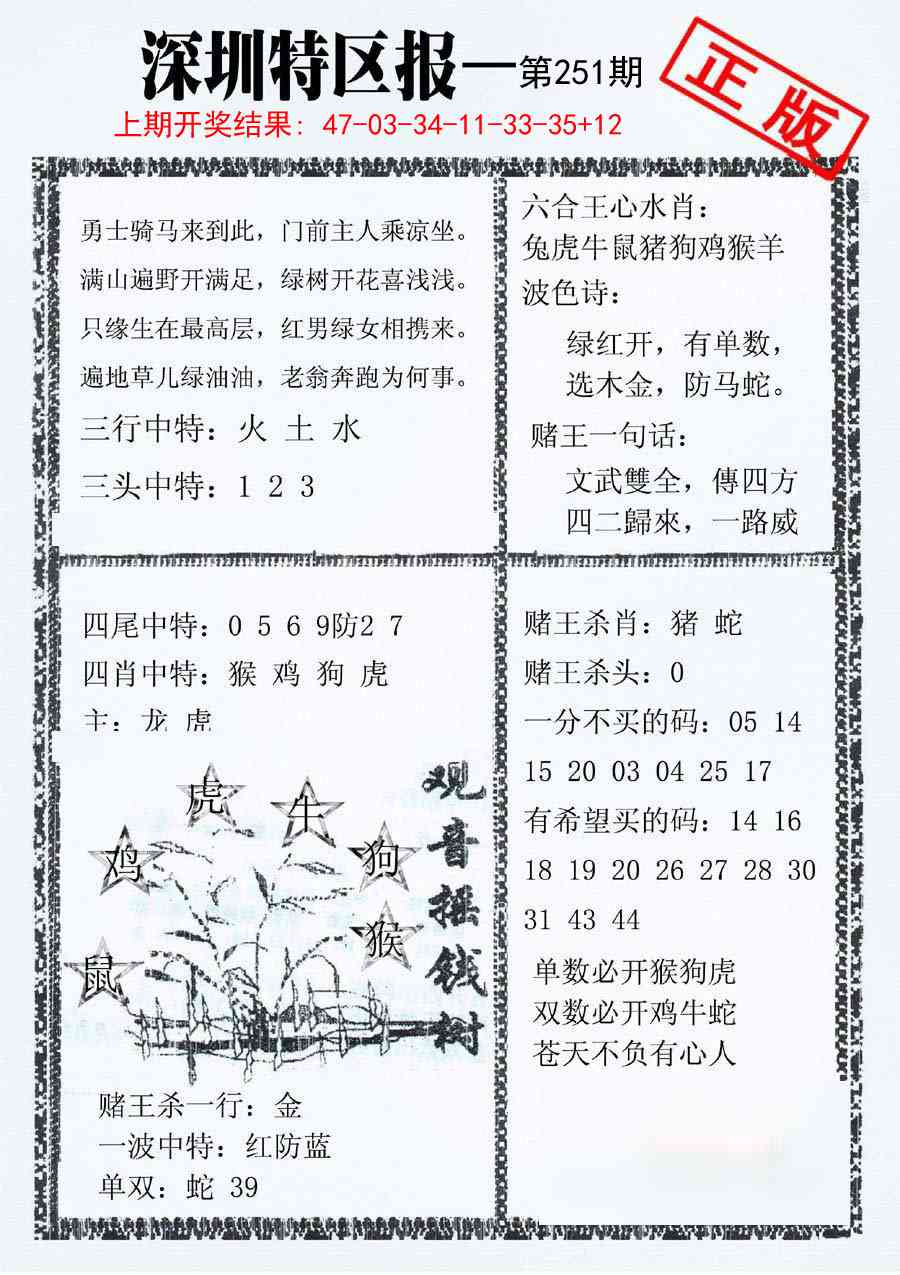 深圳特区报—第251期
正版
上期开奖结果: 47-03-34-11-33-35+12
勇士骑马来到此，门前主人乘凉坐。
满山遍野开满足，绿树开花喜浅浅。
只缘生在最高层，红男绿女相携来。
遍地草儿绿油油，老翁奔跑为何事。
三行中特: 火 土 水
三头中特: 1 2 3
六合王心水肖:
兔虎牛鼠猪狗鸡猴羊
波色诗:
绿红开，有单数，
选木金，防马蛇。
赌王一句话:
文武雙全，傳四方
四二歸來，一路威
四尾中特: 0 5 6 9防2 7
四肖中特: 猴 鸡 狗 虎
主: 龙 虎
虎
牛
鸡
狗
猴
鼠
观音撰钱树
赌王杀一行: 金
一波中特: 红防蓝
单双: 蛇 39
赌王杀肖: 猪 蛇
赌王杀头: 0
一分不买的码: 05 14
15 20 03 04 25 17
有希望买的码: 14 16
18 19 20 26 27 28 30
31 43 44
单数必开猴狗虎
双数必开鸡牛蛇
苍天不负有心人